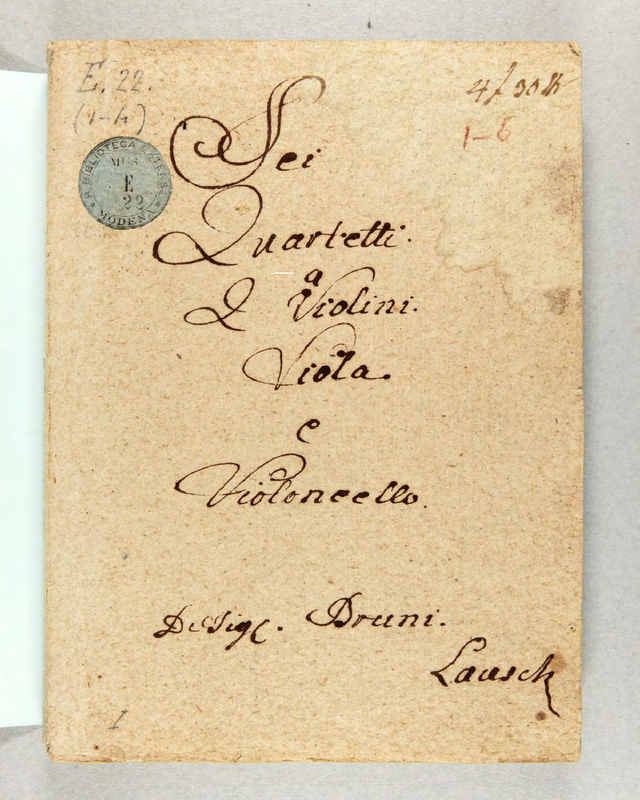 E. 22.
(1-4)
4f 30 x
1-6
R. BIBLIOTECA ESTENSE
MUS.
E
22
MODENA
Sei
Quartetti.
a
2 Violini.
Viola.
e
Violoncello.
Del Sig. Bruni.
Lausch
1